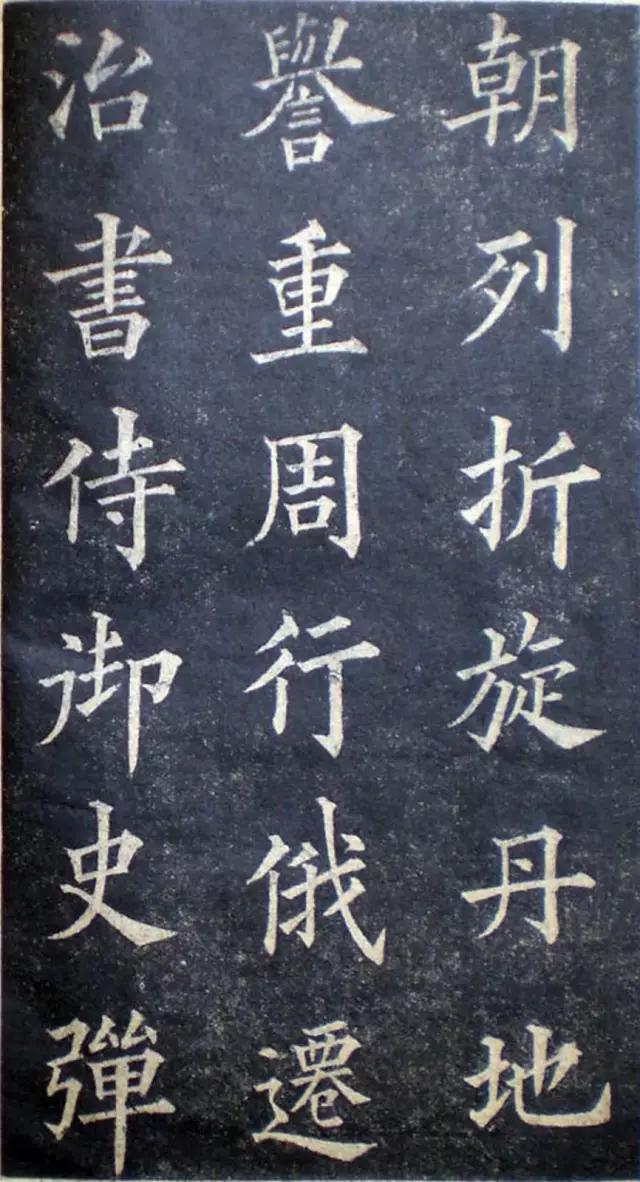 朝列折旋丹地
譽重周行俄遷
治書侍御史彈